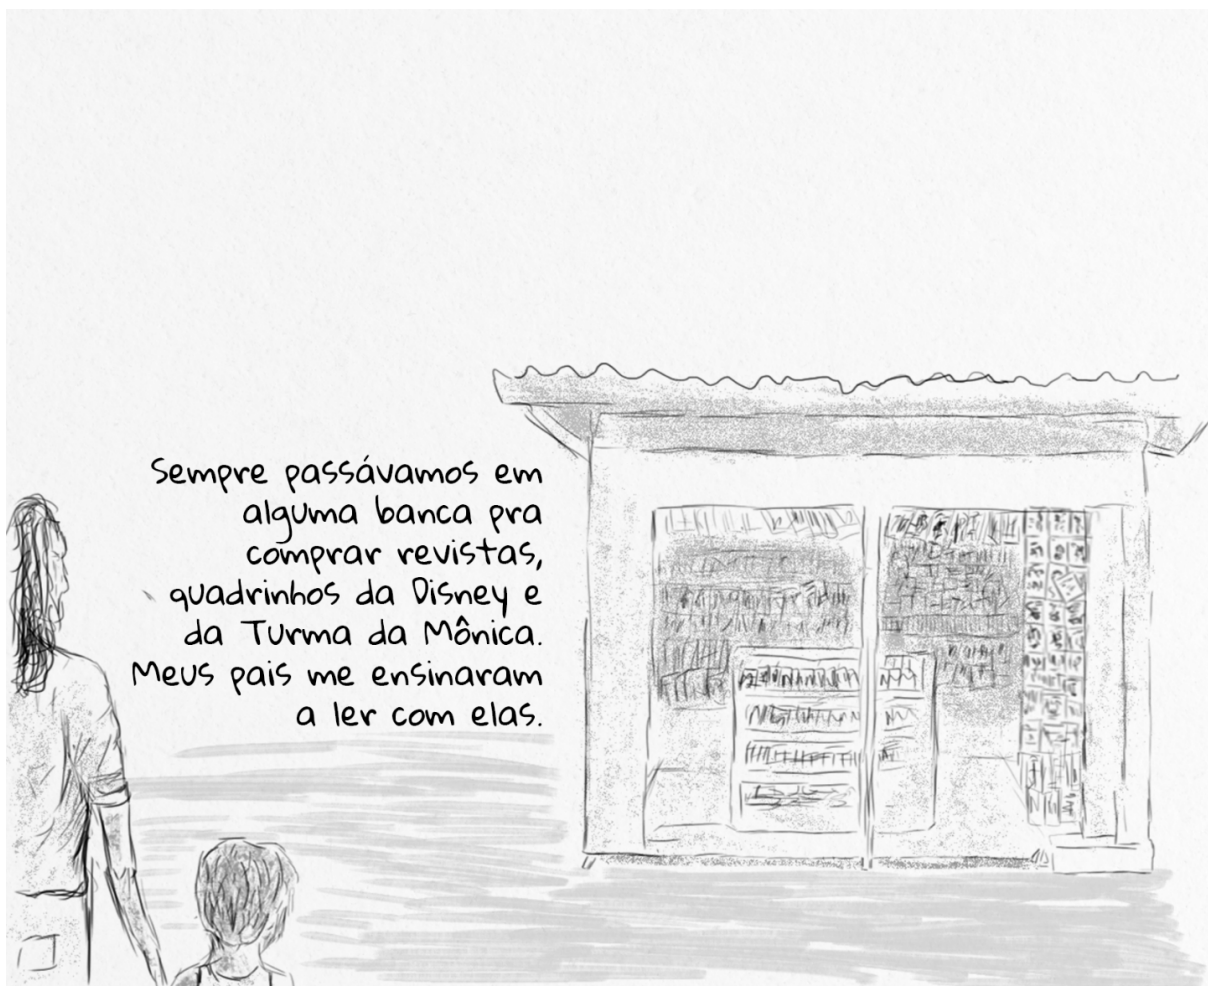 Sempre passávamos em
alguma banca pra
comprar revistas,
quadrinhos da Disney e
da Turma da Mônica.
Meus pais me ensinaram
a ler com elas.